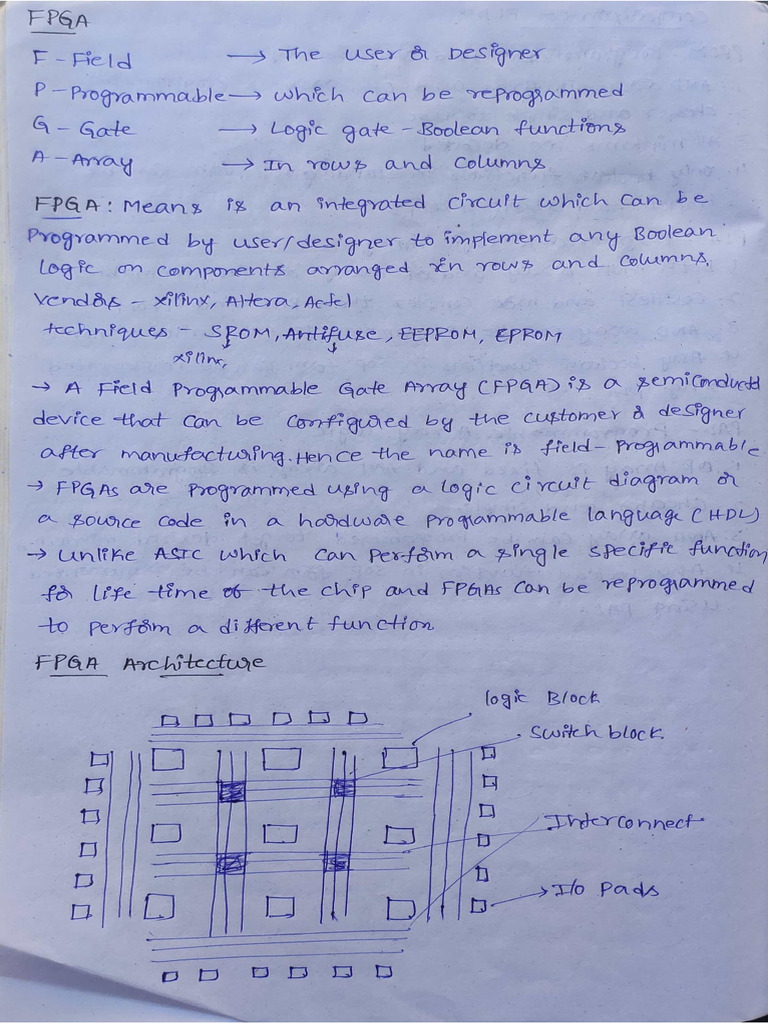 FPGA
F - Field → The user or Designer
P - Programmable → which can be reprogrammed
G - Gate → Logic gate - Boolean functions
A - Array → In rows and columns
FPGA : Means is an integrated circuit which can be
Programmed by user/designer to implement any Boolean
logic on components arranged in rows and columns.
Vendors - xilinx, Altera, Actel
techniques - SROM, Antifuse, EEPROM, EPROM
xilinx,
→ A Field Programmable Gate Array (FPGA) is a semiconductor
device that can be configured by the customer or designer
after manufacturing. Hence the name is field-programmable
→ FPGAs are programmed using a logic circuit diagram or
a source code in a hardware programmable language (HDL)
→ Unlike ASIC which can perform a single specific function
for life time of the chip and FPGAs can be reprogrammed
to perform a different function
FPGA Architecture
logic Block
Switch block.
Interconnect
I/o pads